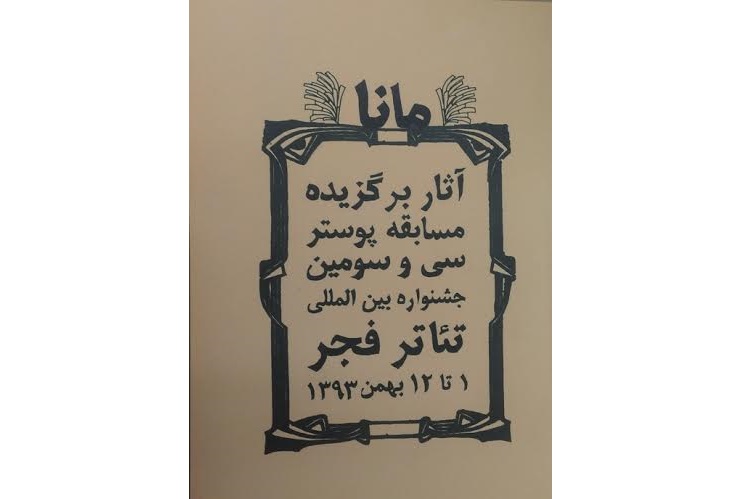 مانا
آثار برگزیده
مسابقه پوستر
سی و سومین
جشنواره بین المللی
تئاتر فجر
۱ تا ۱۲ بهمن ۱۳۹۳